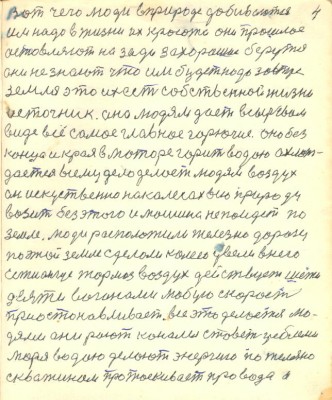 вот чего люди в природе добиваются 4
им надо в жизни их красота они прошлое
оставляют на зади за хорошае берутся
они не знают что им будет надо завтре
земля это и хест собственной жизни
источник. она людям дает в сыр ьвом
виде всё самое главное горючие. оно без
конца и края в моторе горит водою охлаж-
дается всему дело делоет людям воздух
он искуственно на калесах ею природу
возит. без этого и машина не пойдет по
земле. люди расположили железно дорогу
по этой земле сделоли колесо в него
тормоз воздух действует
девяти вагонами любую скорость
приостонавливает. все это делоется лю-
дями они роют каналы ставет
моря водою делоют энергию по
скважинам протаскивает провода а